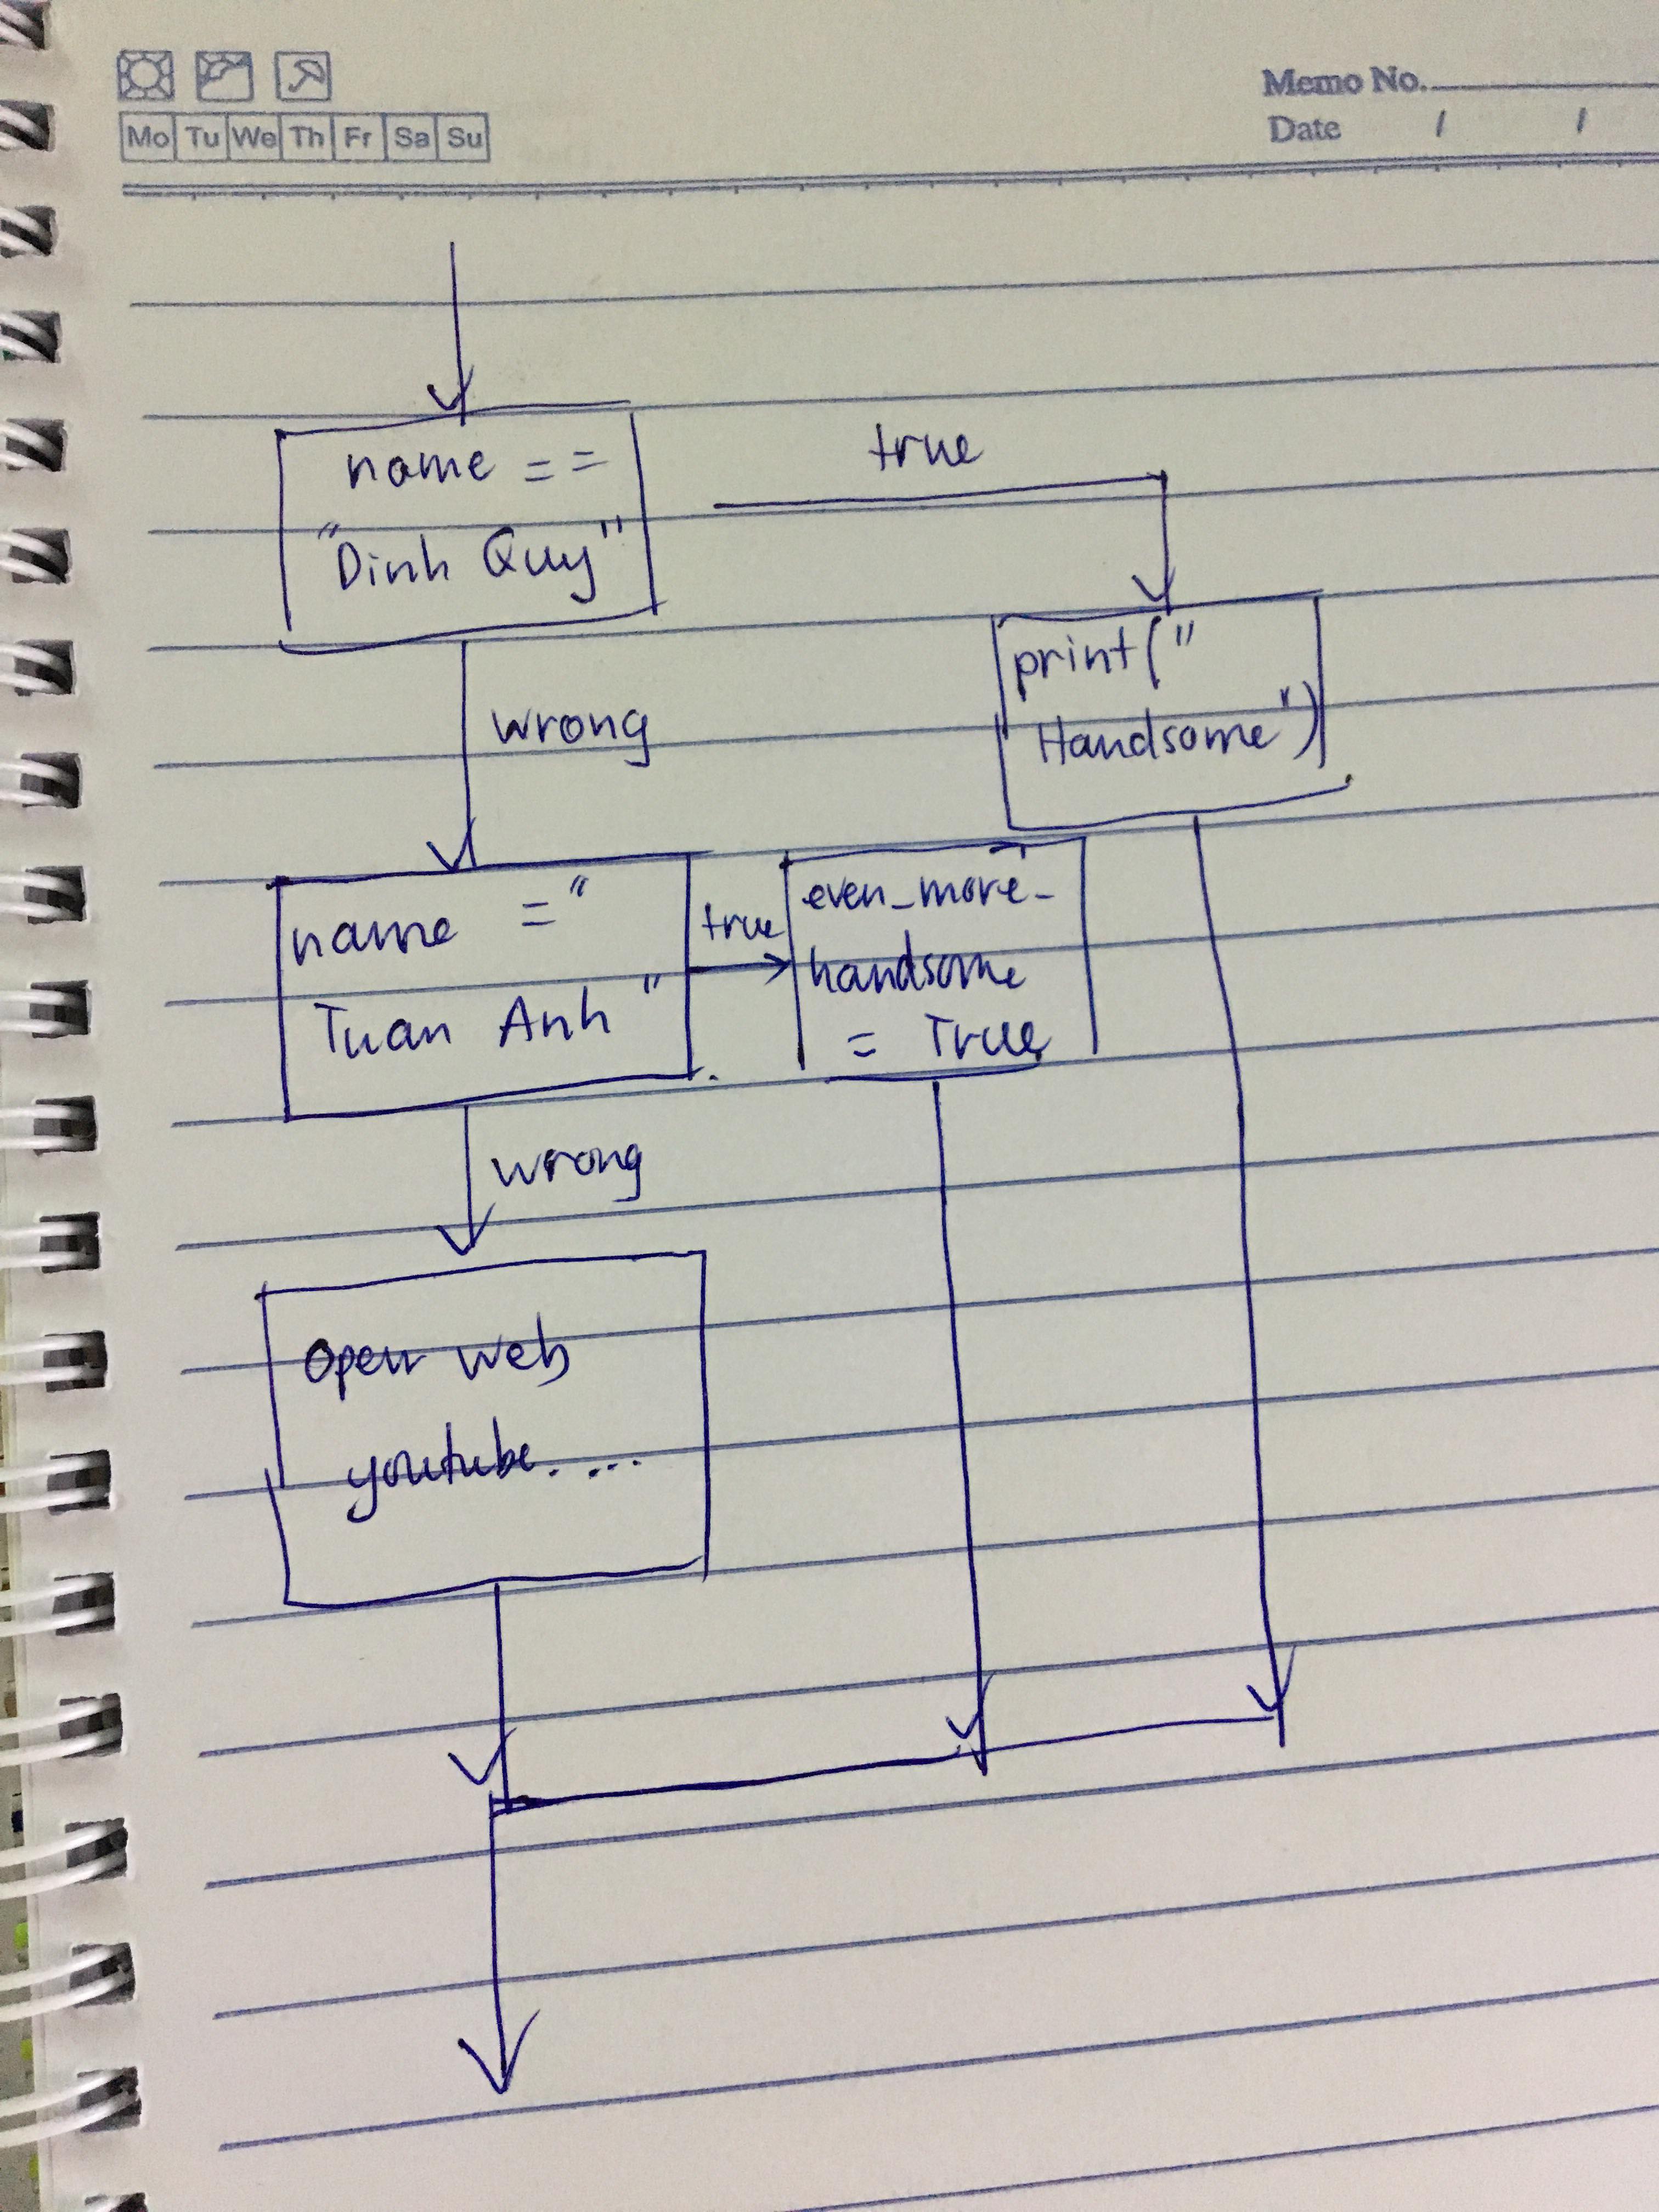 Memo No.
Mo Tu We Th Fr Sa Su
Date / /
name ==
"Dinh Quy"
true
print("
Handsome")
wrong
name = "
Tuan Anh "
true
even_more_
handsome
= True
wrong
Open web
youtube. ...